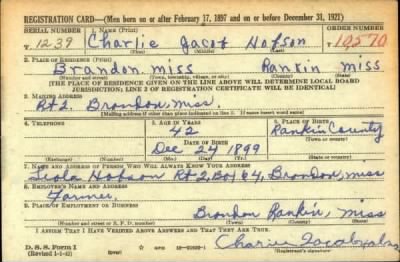 REGISTRATION CARD—(Men born on or after February 17, 1897 and on or before December 31, 1921)
SERIAL NUMBER 1. NAME (Print) ORDER NUMBER
1239 Charlie Jacob Hobson 10570
(First) (Middle) (Last)
2. PLACE OF RESIDENCE (Print)
Brandon miss Rankin miss
(Number and street) (Town, township, village, or city) (County) (State)
[THE PLACE OF RESIDENCE GIVEN ON THE LINE ABOVE WILL DETERMINE LOCAL BOARD
JURISDICTION; LINE 2 OF REGISTRATION CERTIFICATE WILL BE IDENTICAL]
3. MAILING ADDRESS
Rt 2. Brandon, miss.
[Mailing address if other than place indicated on line 2. If same insert word same]
4. TELEPHONE 5. AGE IN YEARS 6. PLACE OF BIRTH
42 Rankin County
DATE OF BIRTH (Town or county)
Dec 24 1899 miss
(Exchange) (Number) (Mo.) (Day) (Yr.) (State or country)
7. NAME AND ADDRESS OF PERSON WHO WILL ALWAYS KNOW YOUR ADDRESS
Leola Hobson Rt 2, Box 64, Brandon, miss
8. EMPLOYER'S NAME AND ADDRESS
Farmer.
9. PLACE OF EMPLOYMENT OR BUSINESS
Brandon Rankin, miss
(Number and street or R. F. D. number) (Town) (County) (State)
I AFFIRM THAT I HAVE VERIFIED ABOVE ANSWERS AND THAT THEY ARE TRUE.
D. S. S. Form 1
(Revised 1-1-42) GPO Charlie
(Registrant's signature)